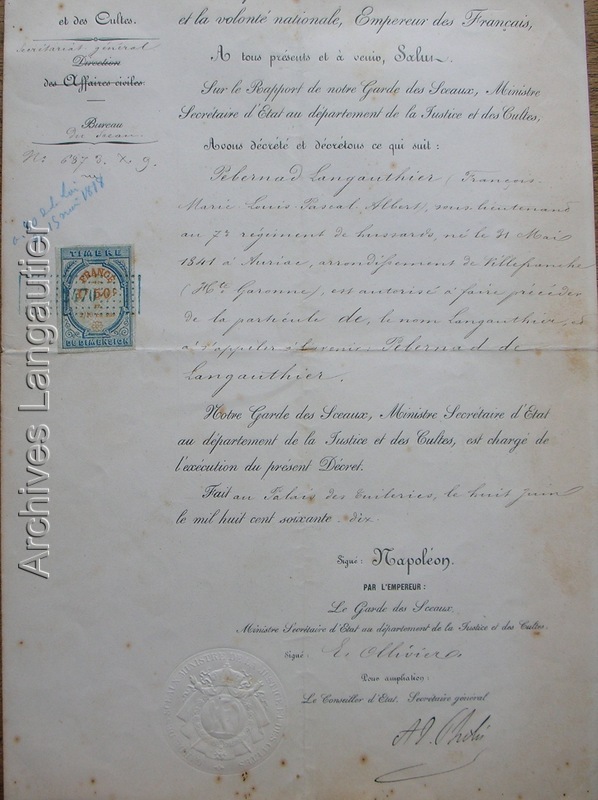 et des Cultes.
Secrétariat général
Direction
des Affaires civiles
Bureau
du Sceau
N° 6873. X 9.
et la volonté nationale, Empereur des Français,
A tous présents et à venir, Salut.
Sur le Rapport de notre Garde des Sceaux, Ministre
Secrétaire d'Etat au département de la Justice et des Cultes.
Avons décrété et décrétons ce qui suit :
Pebernad Langauthier (François
Marie Louis Pascal Albert), sous lieutenant
au 7e régiment de hussards, né le 31 Mai
1841 à Auriac, arrondissement de Villefranche
(Hte Garonne), est autorisé à faire précéder
de la particule de, le nom Langauthier, et
à s'appeler à l'avenir, Pebernad de
Langauthier.
Notre Garde des Sceaux, Ministre Secrétaire d'Etat
au département de la Justice et des Cultes, est chargé de
l'exécution du présent Décret.
Fait au Palais des Tuileries, le huit juin
le mil huit cent soixante-dix
Signé : Napoléon.
PAR L'EMPEREUR :
Le Garde des Sceaux,
Ministre Secrétaire d'Etat au département de la Justice et des Cultes.
Signé : E. Ollivier
Pour ampliation :
Le Conseiller d'Etat, Secrétaire général
TIMBRE
FRANCE
DE DIMENSION
Archives Langautier